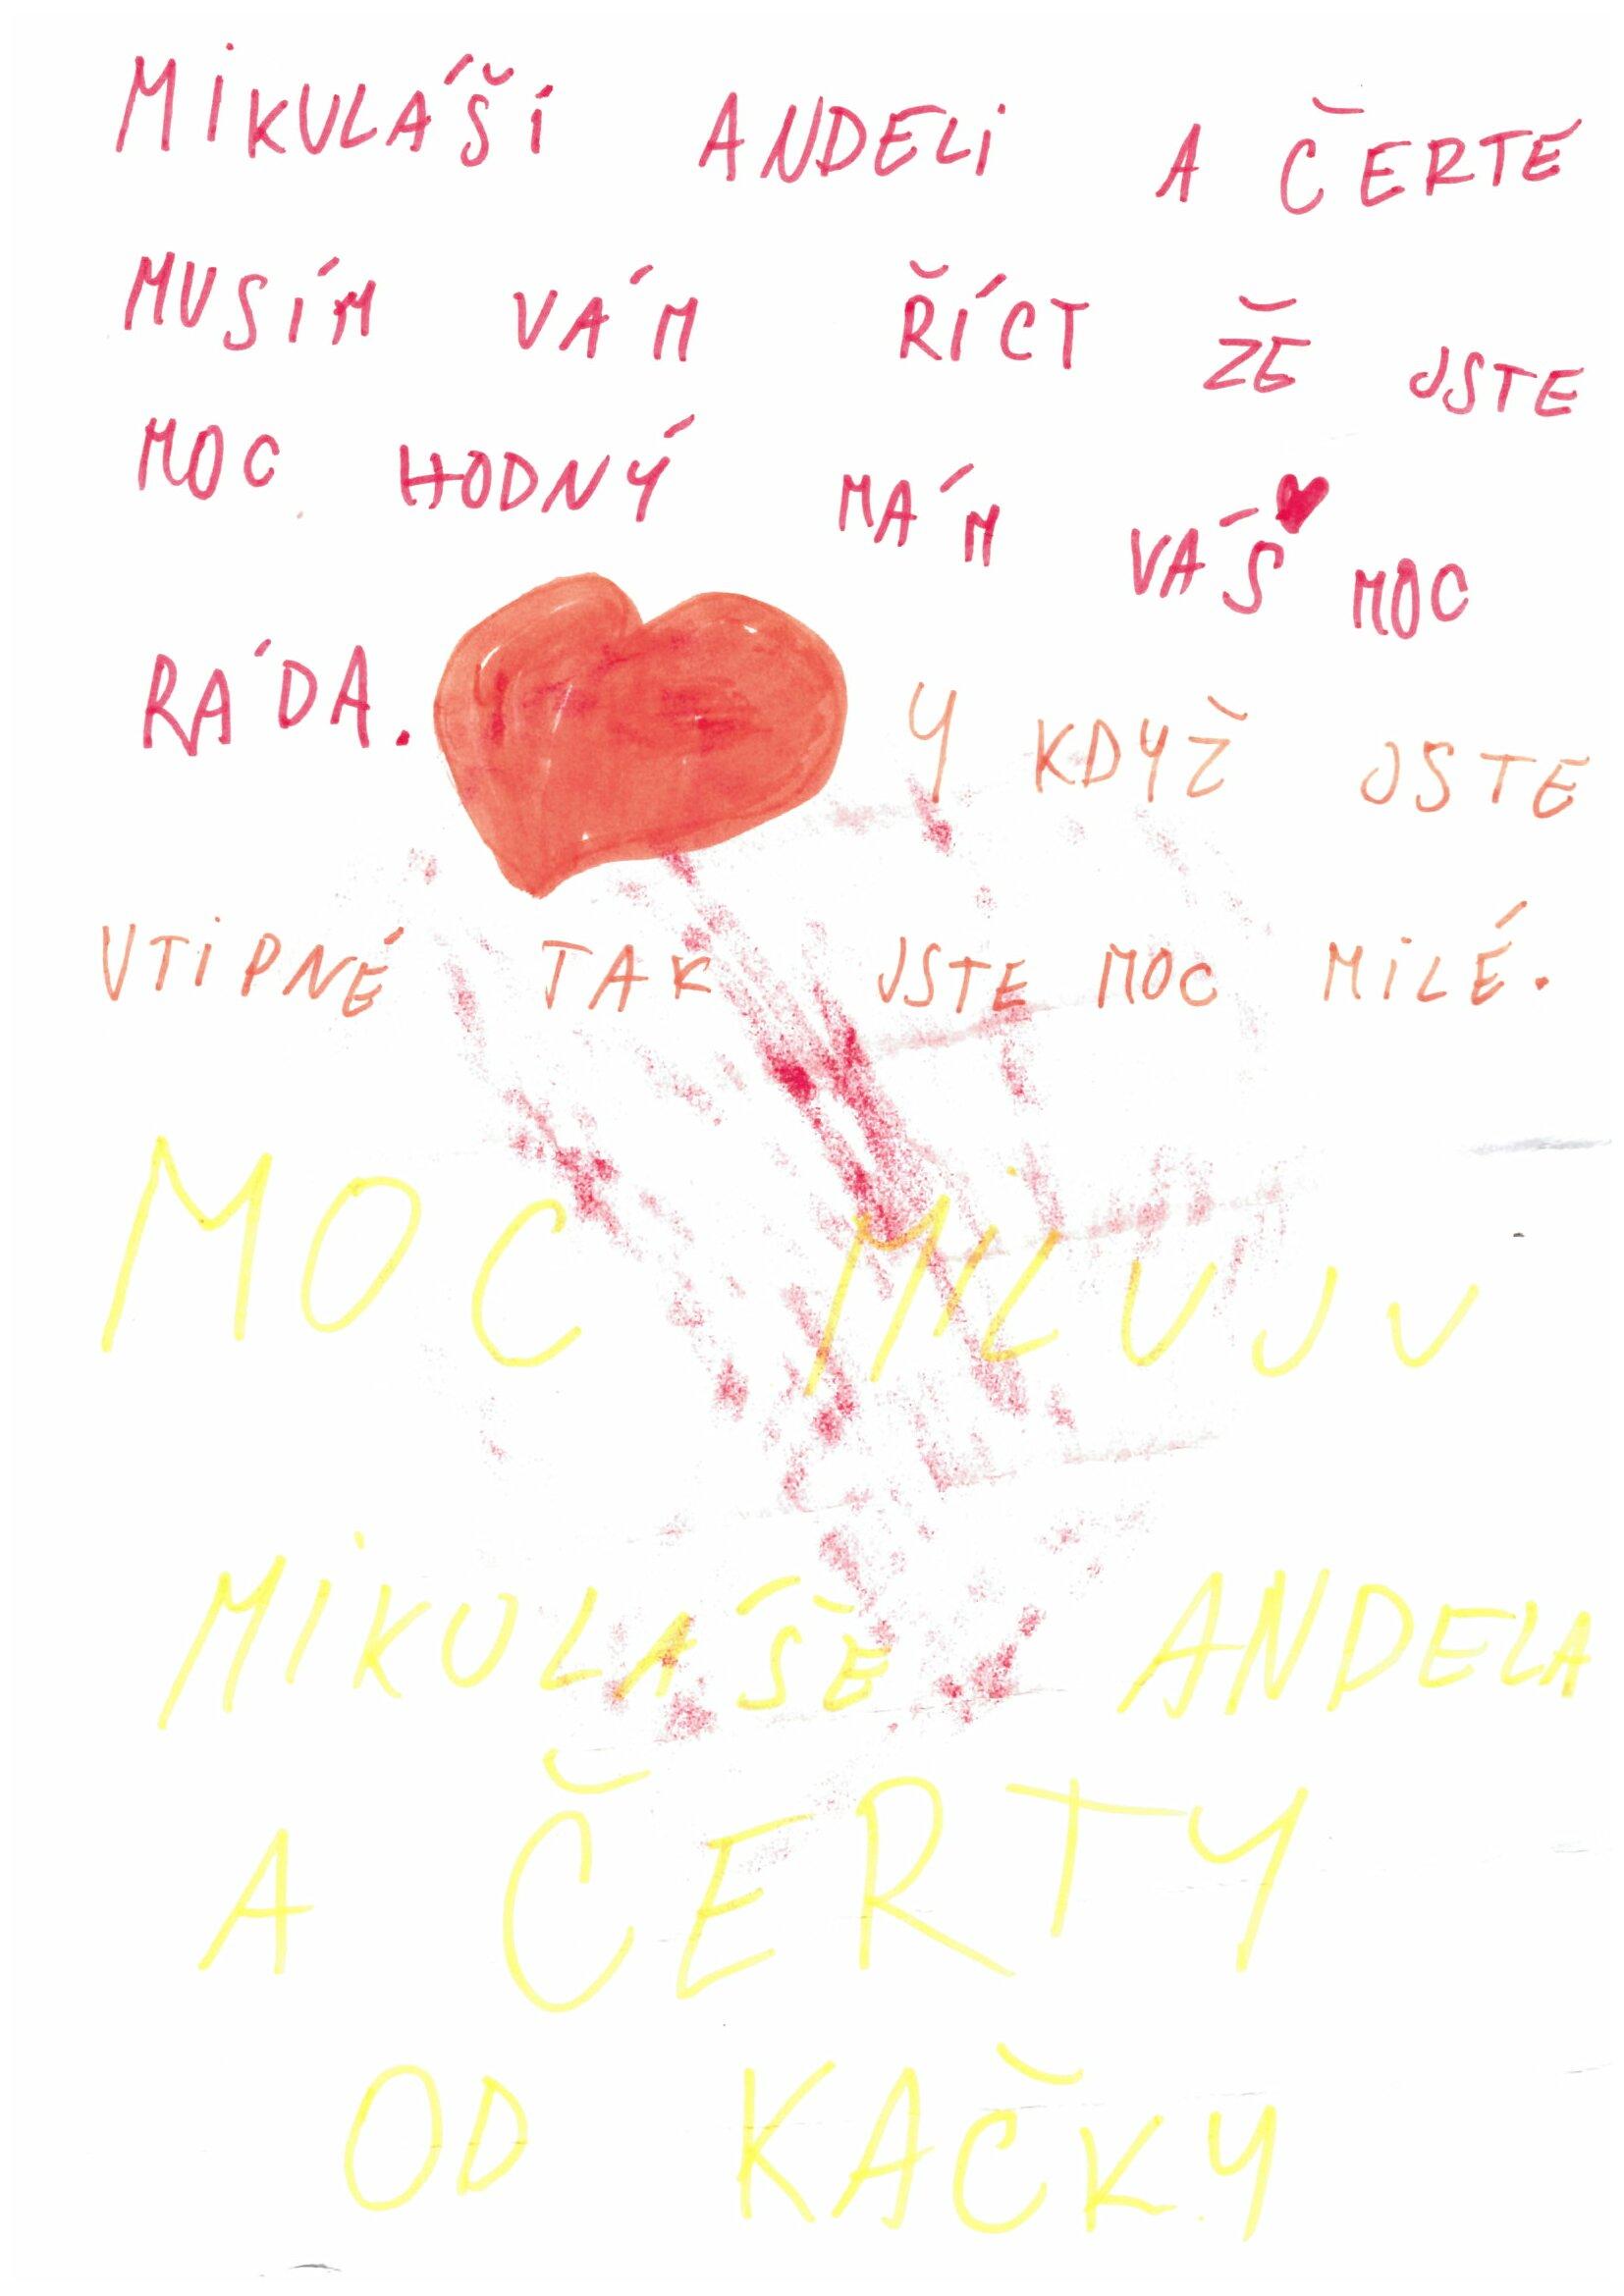 MIKULÁŠÍ ANDELI A ČERTE
MUSÍM VÁM ŘÍCT ŽE JSTE
MOC HODNÝ MÁM VÁS MOC
RÁDA. Y KDYŽ JSTE
VTIPNÉ TAK JSTE MOC MILÉ.
MOC MILUJU
MIKULÁŠE ANDELA
A ČERTY
OD KAČKY